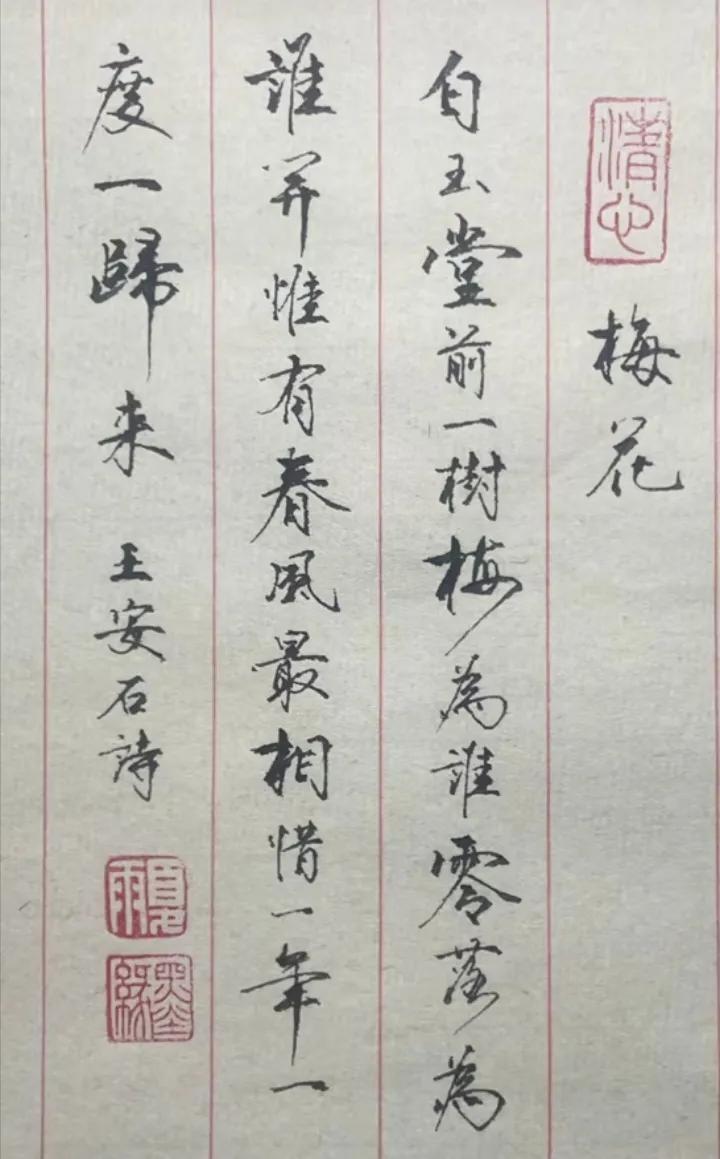 清心
梅花
白玉堂前一樹梅為誰零落為
誰開惟有春風最相惜一年一
度一歸來 王安石詩
夏雨
墨緣